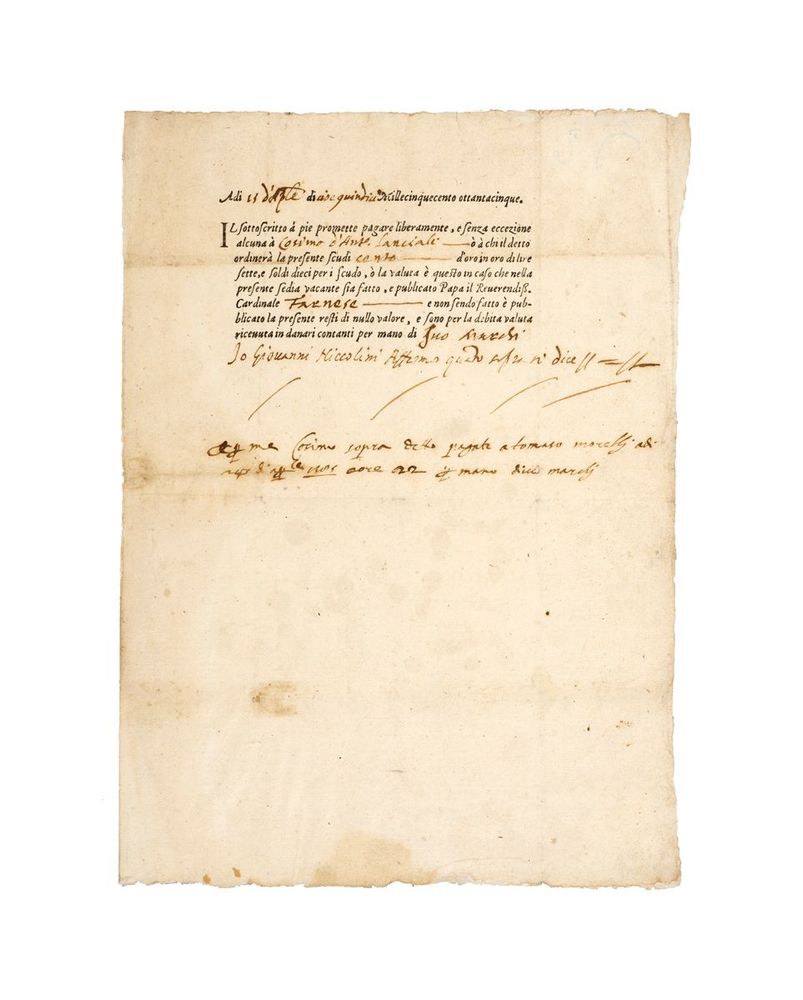 Adi 15 d'Aple dicoe quindici Millecinquecento ottantacinque.
IL sottoscritto à pie promette pagare liberamente, e senza eccezione
alcuna à Cosimo d'Ant.o Lanciali ò à chi il detto
ordinerà la presente scudi cento d'oro in oro di lire
sette, e soldi dieci per i scudo, ò la valuta è questo in caso che nella
presente sedia vacante sia fatto, e publicato Papa il Reverendiß.
Cardinale Farnese e non sendo fatto è pub-
blicato la presente resti di nullo valore, e sono per la debita valuta
ricevuta in danari contanti per mano di
Io Giovanni Niccolini Affermo quanto si dice
me Cosimo sopra detto pagate a tomaso morelli adi
ore 22 mano